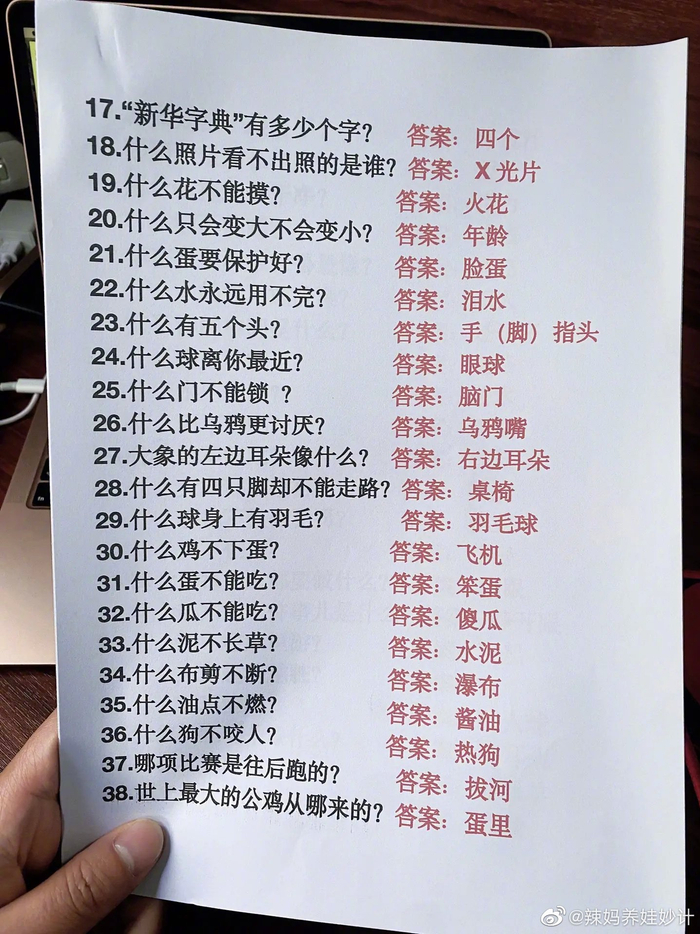 17.“新华字典”有多少个字？ 答案：四个
18.什么照片看不出照的是谁？ 答案：X光片
19.什么花不能摸？ 答案：火花
20.什么只会变大不会变小？ 答案：年龄
21.什么蛋要保护好？ 答案：脸蛋
22.什么水永远用不完？ 答案：泪水
23.什么有五个头？ 答案：手（脚）指头
24.什么球离你最近？ 答案：眼球
25.什么门不能锁 ？ 答案：脑门
26.什么比乌鸦更讨厌？ 答案：乌鸦嘴
27.大象的左边耳朵像什么？ 答案：右边耳朵
28.什么有四只脚却不能走路？ 答案：桌椅
29.什么球身上有羽毛？ 答案：羽毛球
30.什么鸡不下蛋？ 答案：飞机
31.什么蛋不能吃？ 答案：笨蛋
32.什么瓜不能吃？ 答案：傻瓜
33.什么泥不长草？ 答案：水泥
34.什么布剪不断？ 答案：瀑布
35.什么油点不燃？ 答案：酱油
36.什么狗不咬人？ 答案：热狗
37.哪项比赛是往后跑的？ 答案：拔河
38.世上最大的公鸡从哪来的？ 答案：蛋里
@辣妈养娃妙计